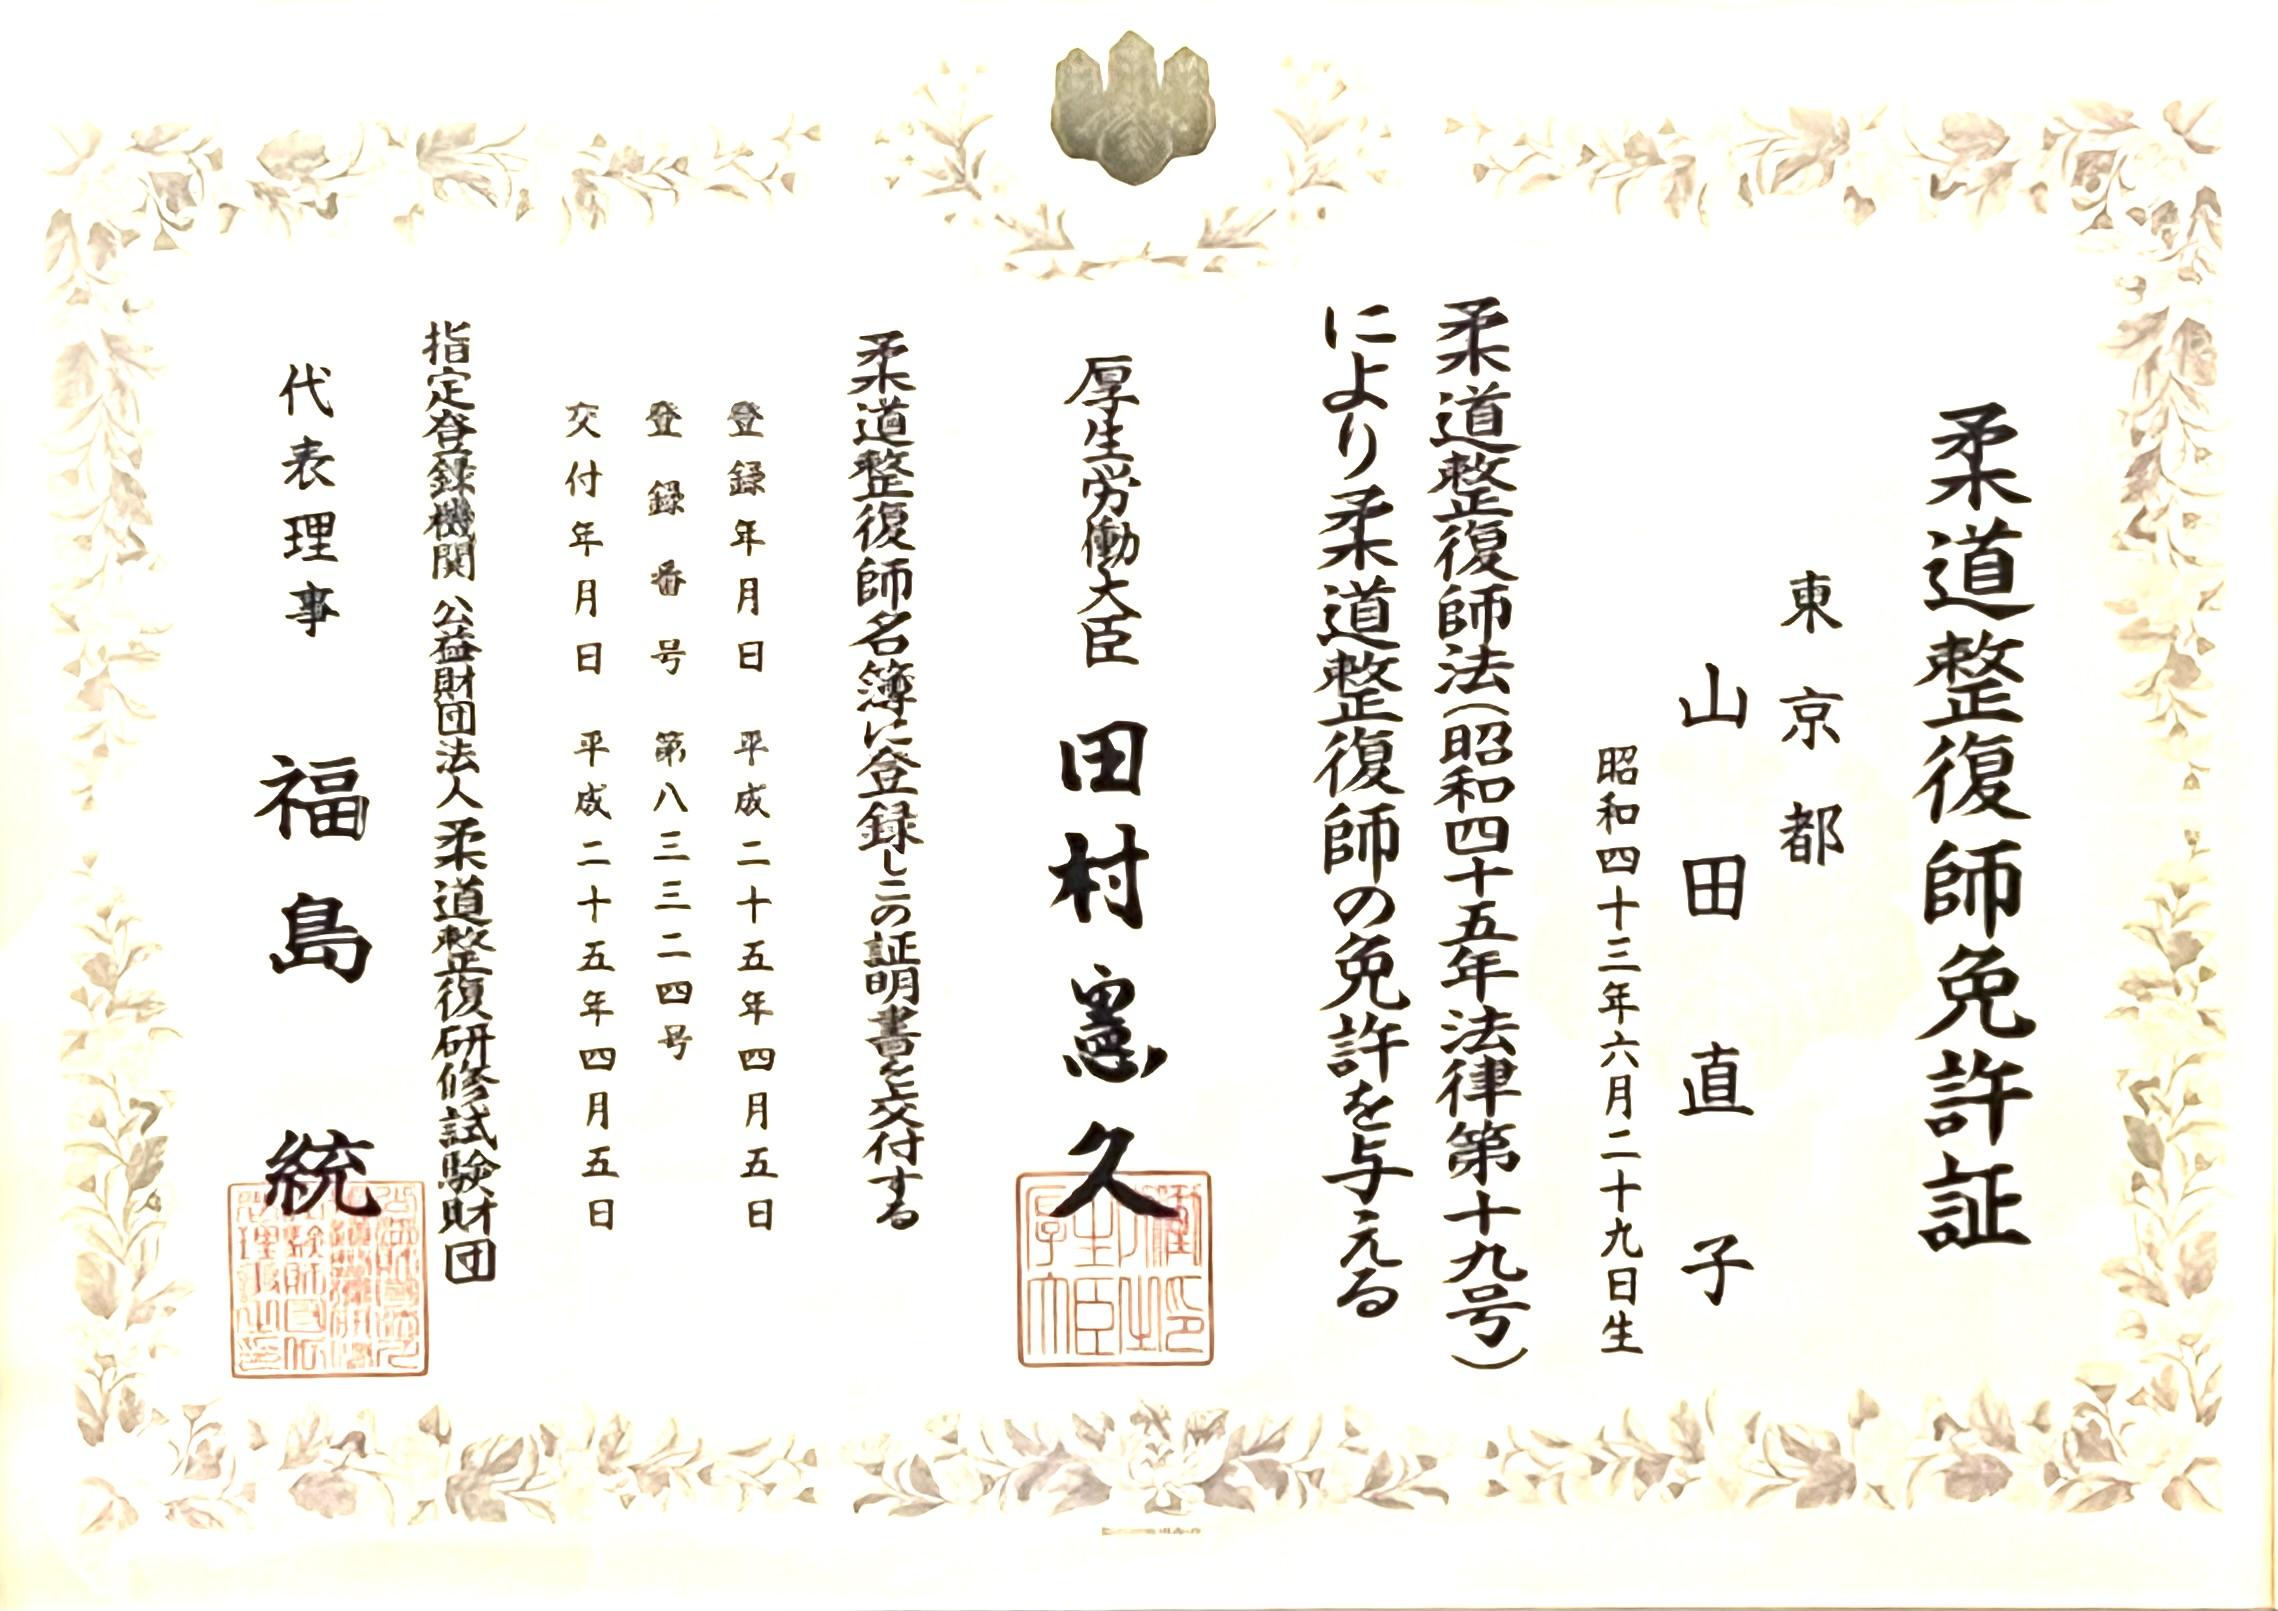 柔道整復師免許証
東京都
山田直子
昭和四十三年六月二十九日生
柔道整復師法(昭和四十五年法律第十九号)
により柔道整復師の免許を与える
厚生労働大臣 田村憲久
柔道整復師名簿に登録しこの証明書を交付する
登録年月日 平成二十五年四月五日
登録番号 第八三三二四号
交付年月日 平成二十五年四月五日
指定登録機関 公益財団法人 柔道整復研修試験財団
代表理事 福島統